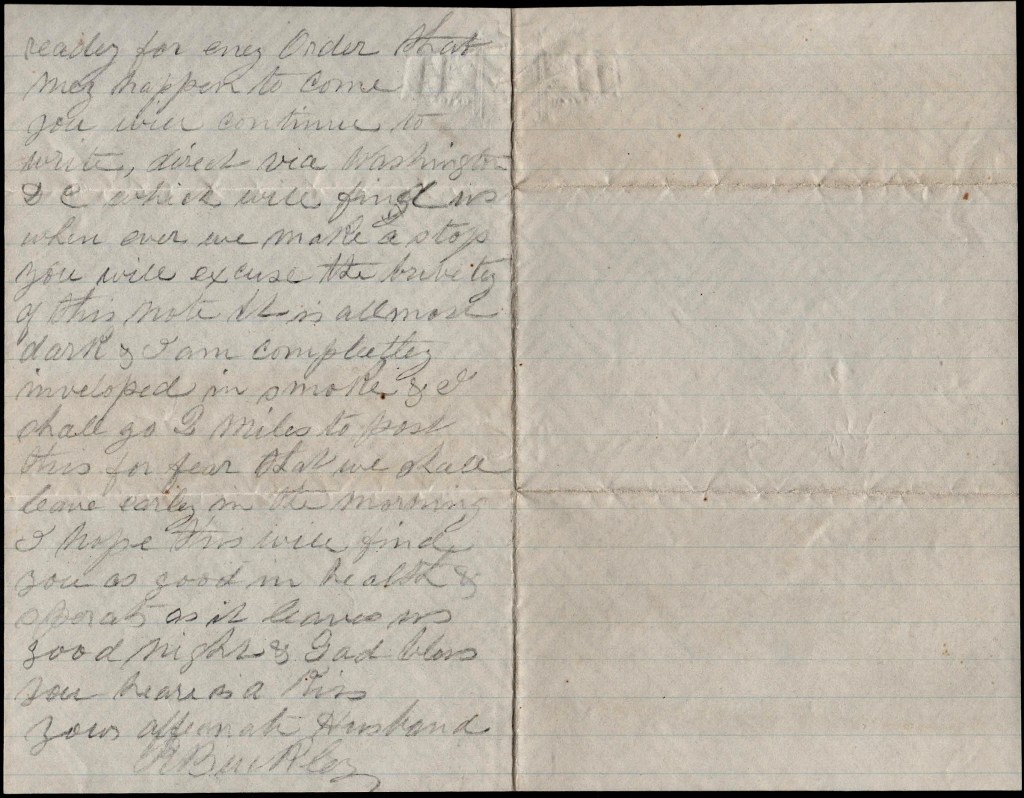 ready for eney Order that
mey happen to come
you will continue to
write, direct via Washington
D C which will find us
when ever we make a stop
you will excuse the brivity
of this note it is allmost
dark & I am complettey
inveloped in smoke & I
shall go 2 miles to post
this for fear that we shall
leave early in the morning
I hope this will find
you as good in health &
as it leaves us
good night & God bless
you heare is a kiss
yours Husband
Buckley